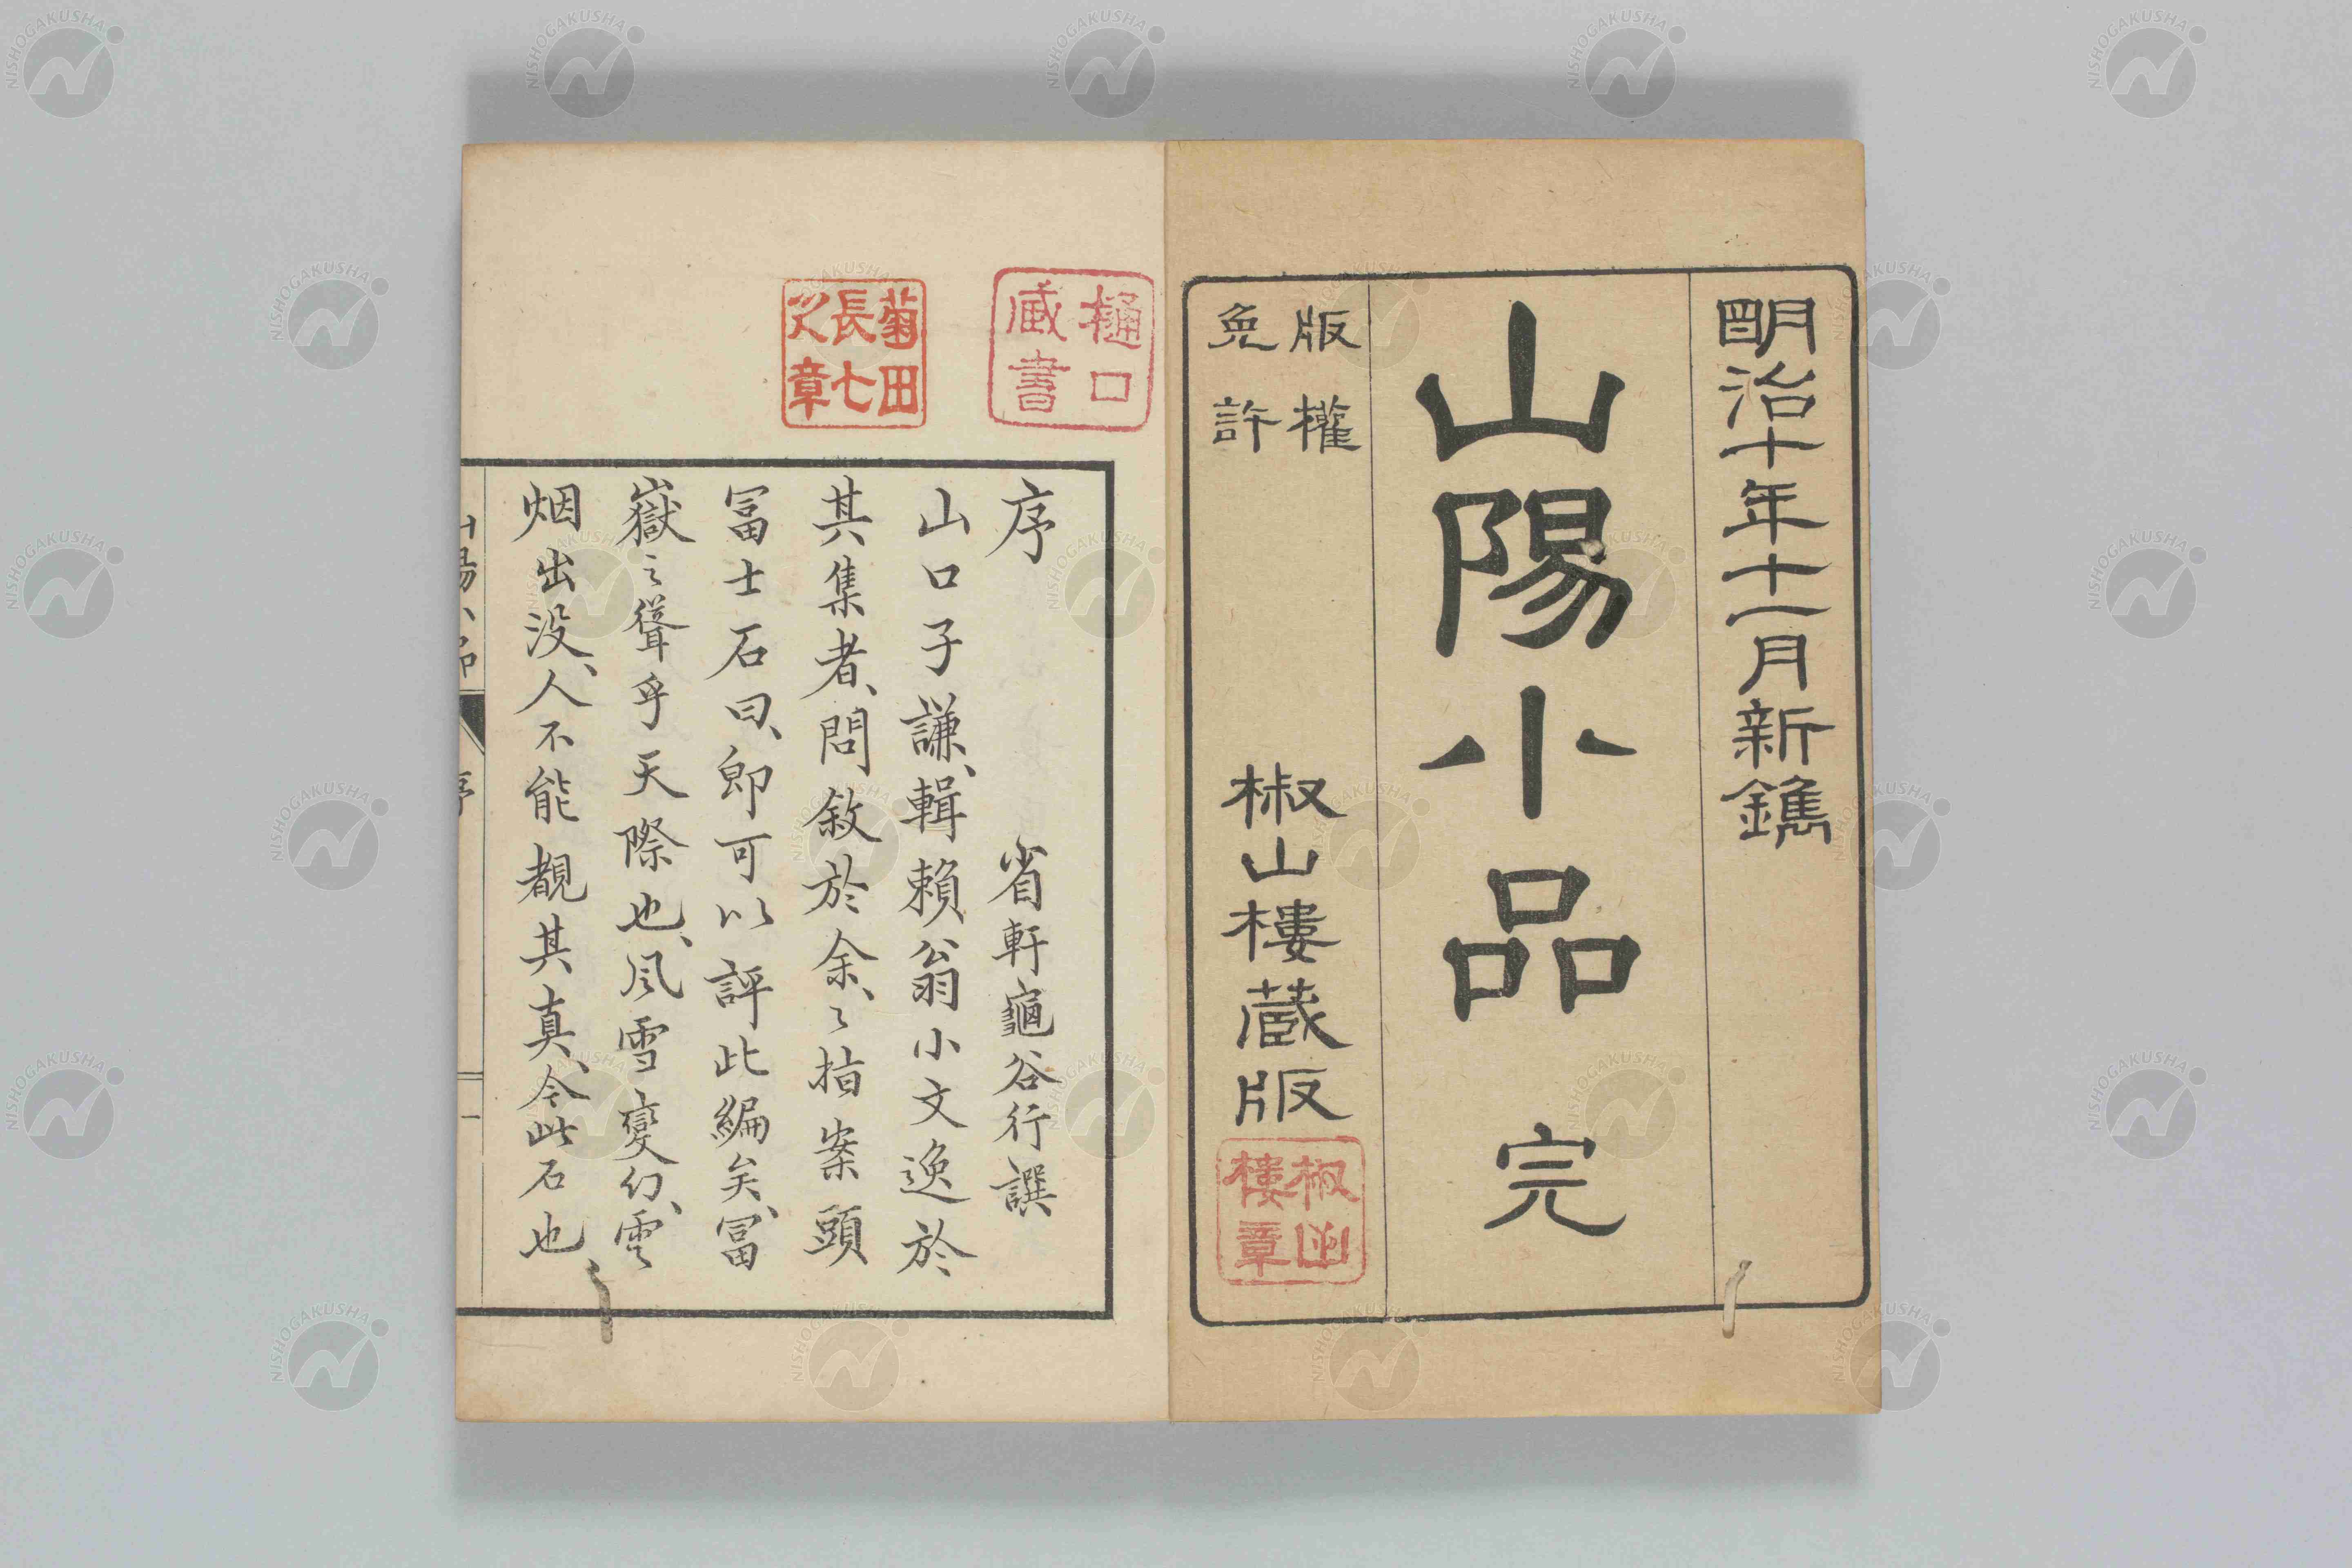 明治十年十一月新鐫
山陽小品 完
版權
免許
椒山樓蔵版
椒山
樓章
樋口
蔵書
菊田
長七
之章
序 省軒龜谷行譔
山口子謙、輯賴翁小文逸於
其集者、問敘於余、〻指案頭
冨士石曰、即可以評此編矣、冨
嶽之聳乎天際也、風雪變幻、雲
烟出没、人不能覩其真、今此石也、
NISHOGAKUSHA